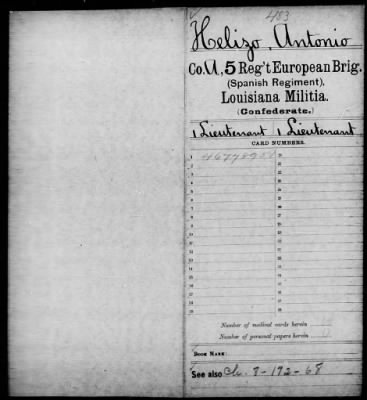 483
Helizo, Antonio
Co. A, 5 Reg't European Brig.
(Spanish Regiment),
Louisiana Militia.
(Confederate.)
1 Lieutenant 1 Lieutenant
CARD NUMBERS.
Number of medical cards herein
Number of personal papers herein
BOOK MARK:
See also Ch. 8-192-68